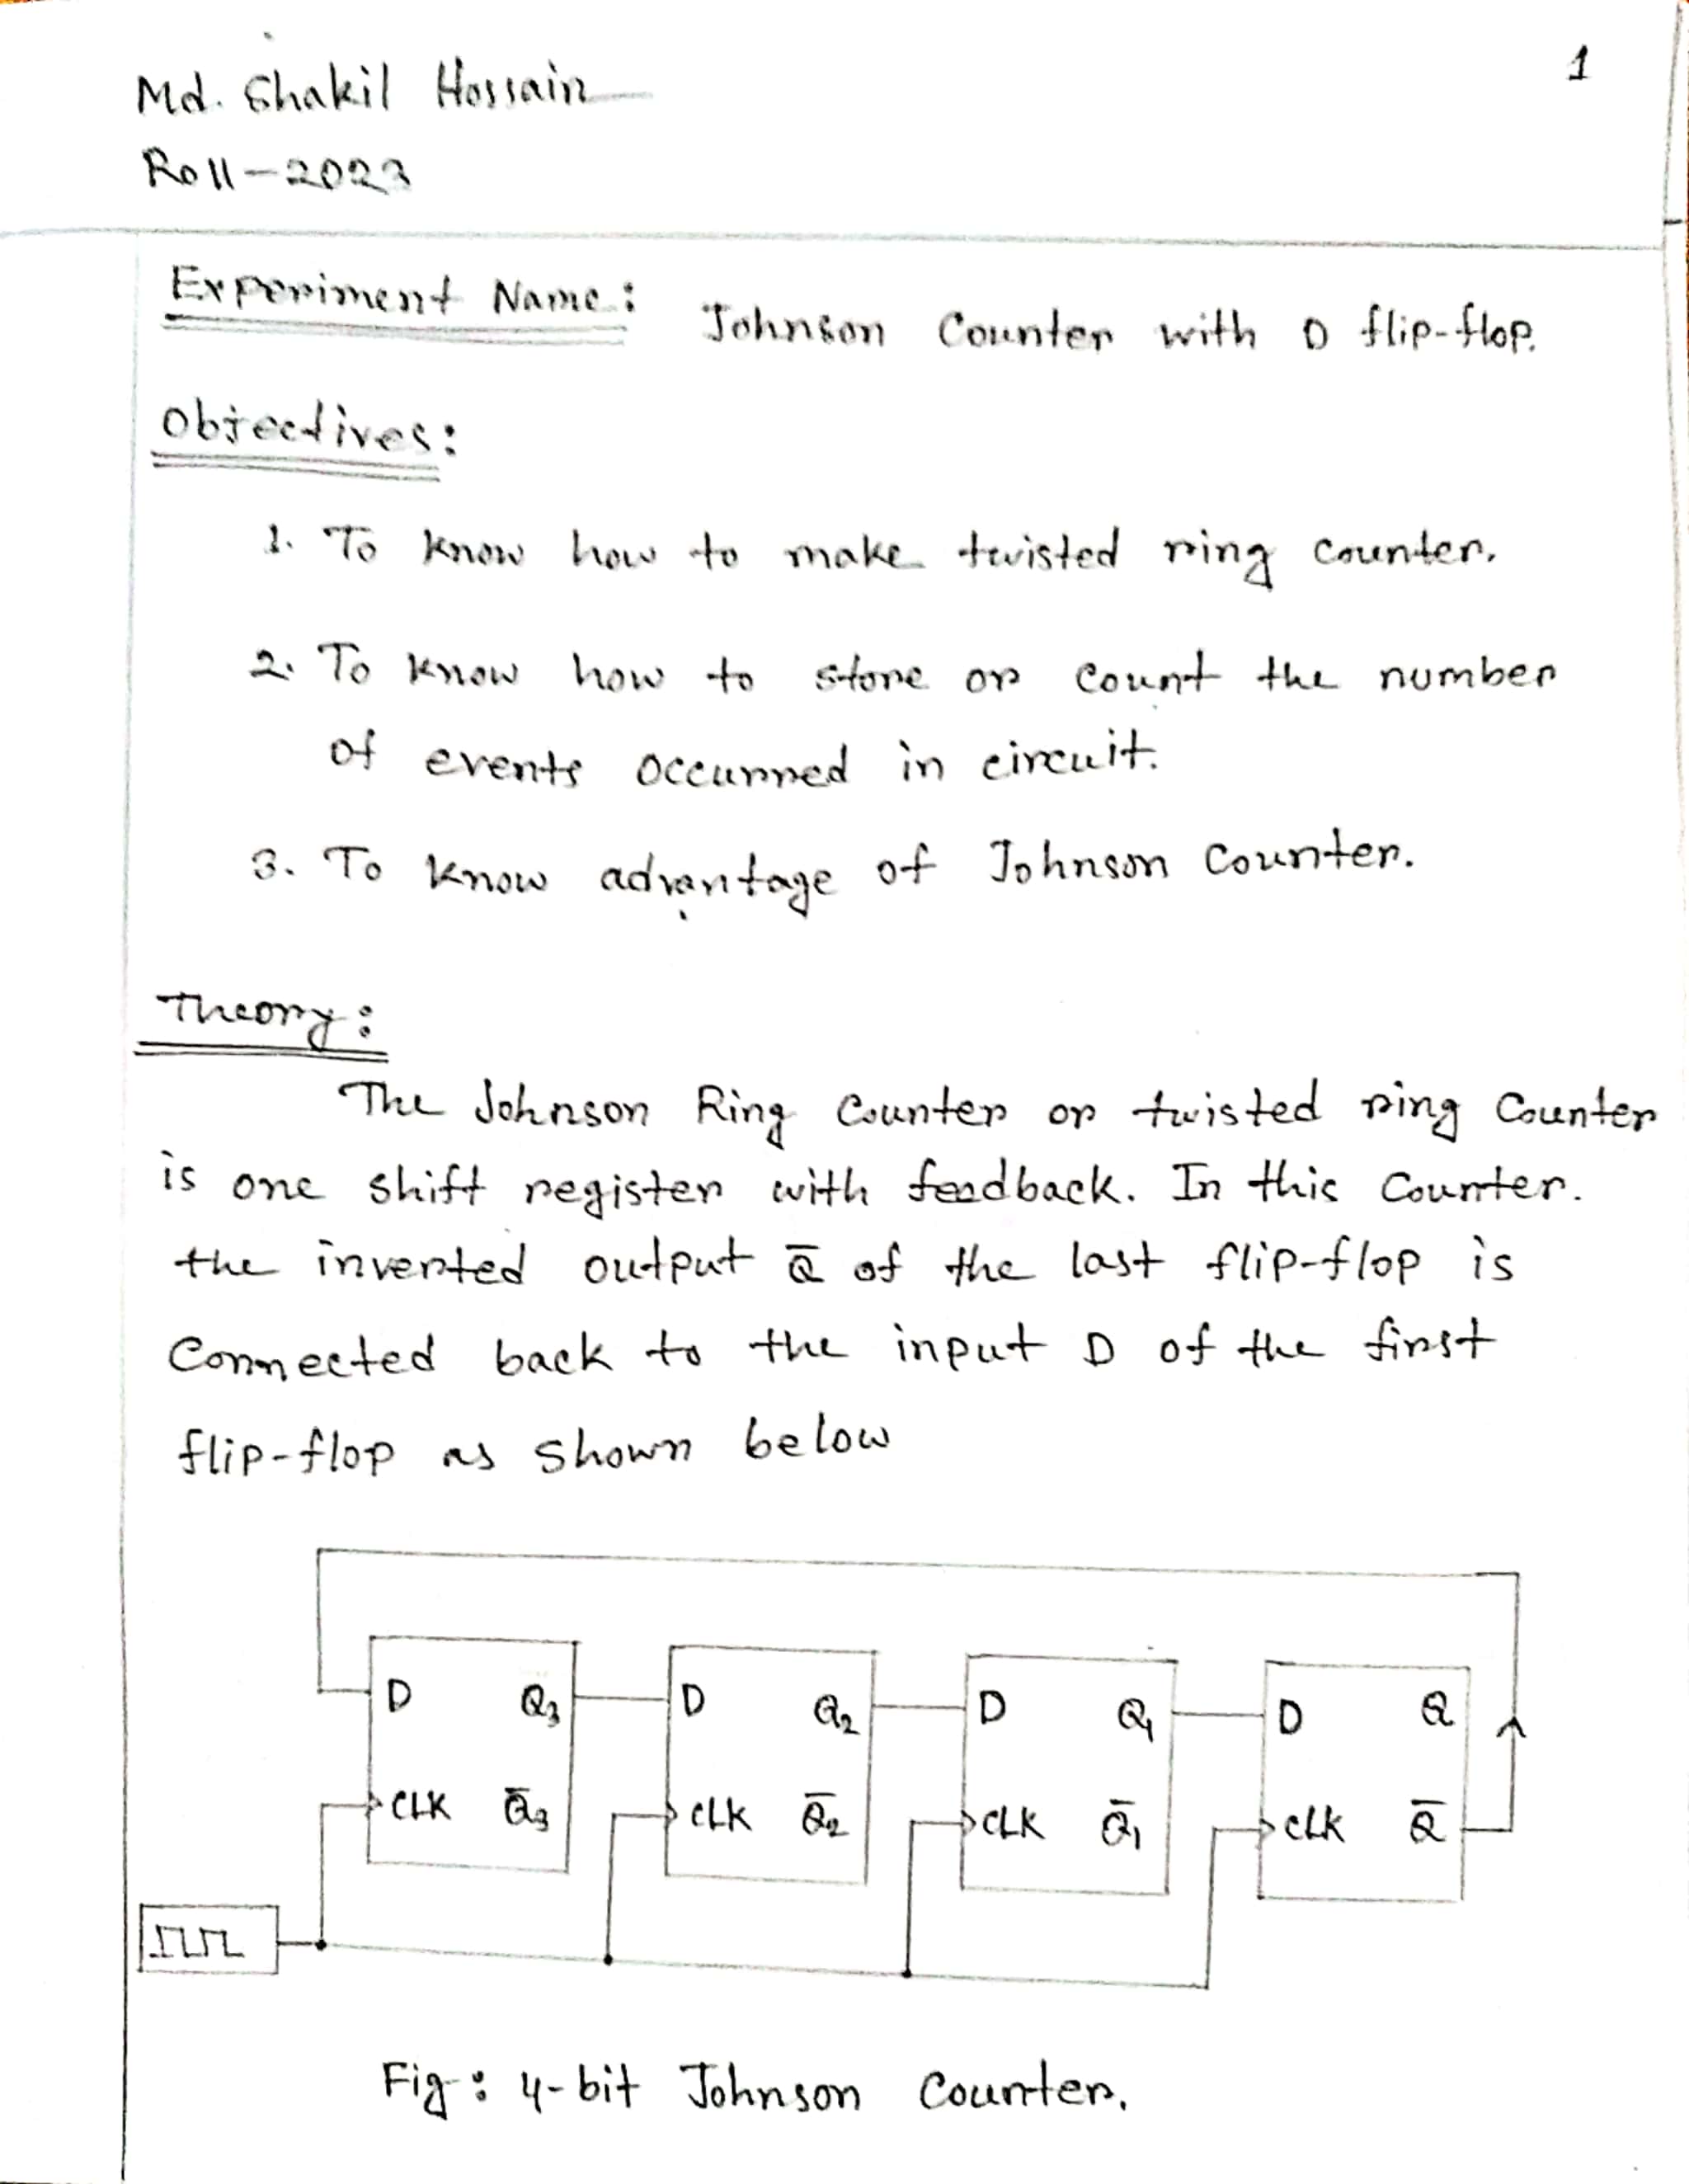 Md. Shakil Hossain
1
Roll-2023
Experiment Name: Johnson Counter with D flip-flop.
Objectives:
1. To know how to make twisted ring counter.
2. To know how to store or count the number
of events occurred in circuit.
3. To know advantage of Johnson Counter.
Theory:
The Johnson Ring Counter or twisted ring Counter
is one shift register with feedback. In this Counter.
the inverted output Q̅ of the last flip-flop is
Connected back to the input D of the first
flip-flop as shown below
D Q₃ D Q₂ D Q₁ D Q
CLK Q̅₃ CLK Q̅₂ CLK Q̅₁ CLK Q̅
Fig: 4-bit Johnson Counter.